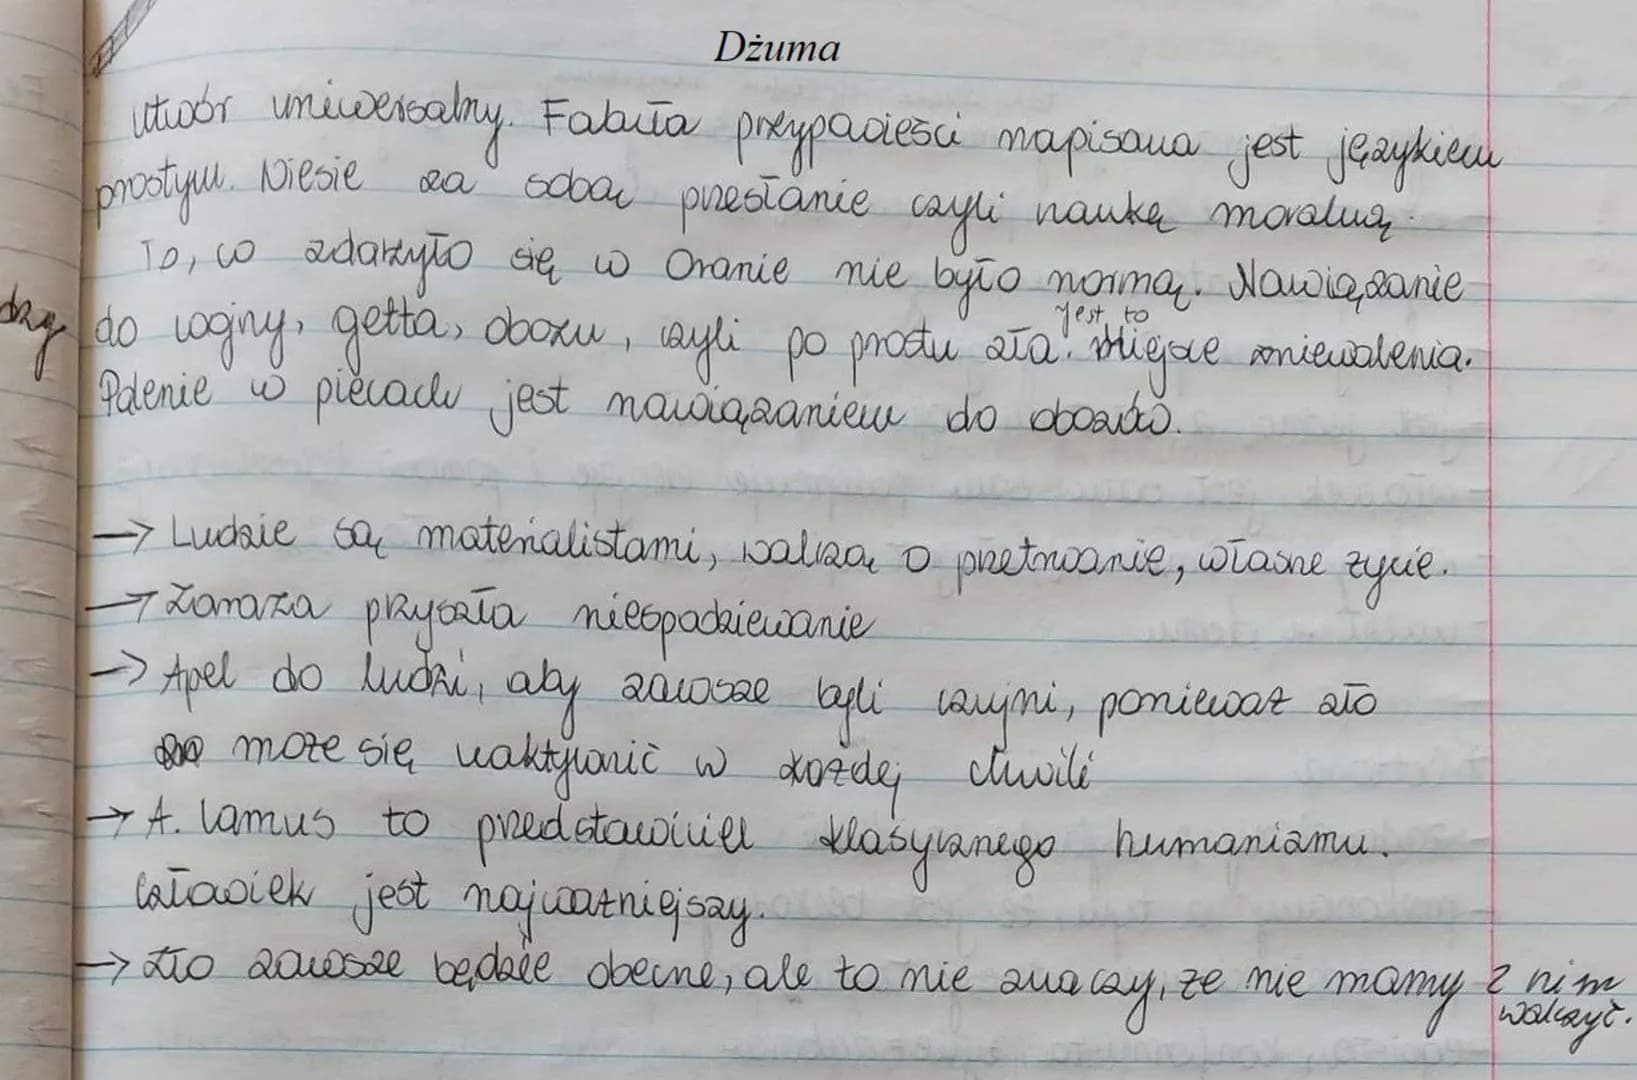 Dżuma
utwór uniwersalny. Fabuła przypowieści napisana jest językiem
prostym. Niesie za sobą przesłanie czyli naukę moralną.
To, co zdarzyło się w Oranie nie było normą. Nawiązanie
do wojny, getta, obozu, czyli po prostu zła. jest to Miejsce zniewolenia.
Palenie w piecach jest nawiązaniem do obozów.
→ Ludzie są materialistami, walczą o przetrwanie, własne życie.
→ Zaraza przyszła niespodziewanie
→ Apel do ludzi, aby zawsze byli czujni, ponieważ zło
może się uaktywnić w każdej chwili
→ A. Camus to przedstawiciel klasycznego humanizmu.
Człowiek jest najważniejszy.
→ Zło zawsze będzie obecne, ale to nie znaczy, że nie mamy z nim
walczyć.